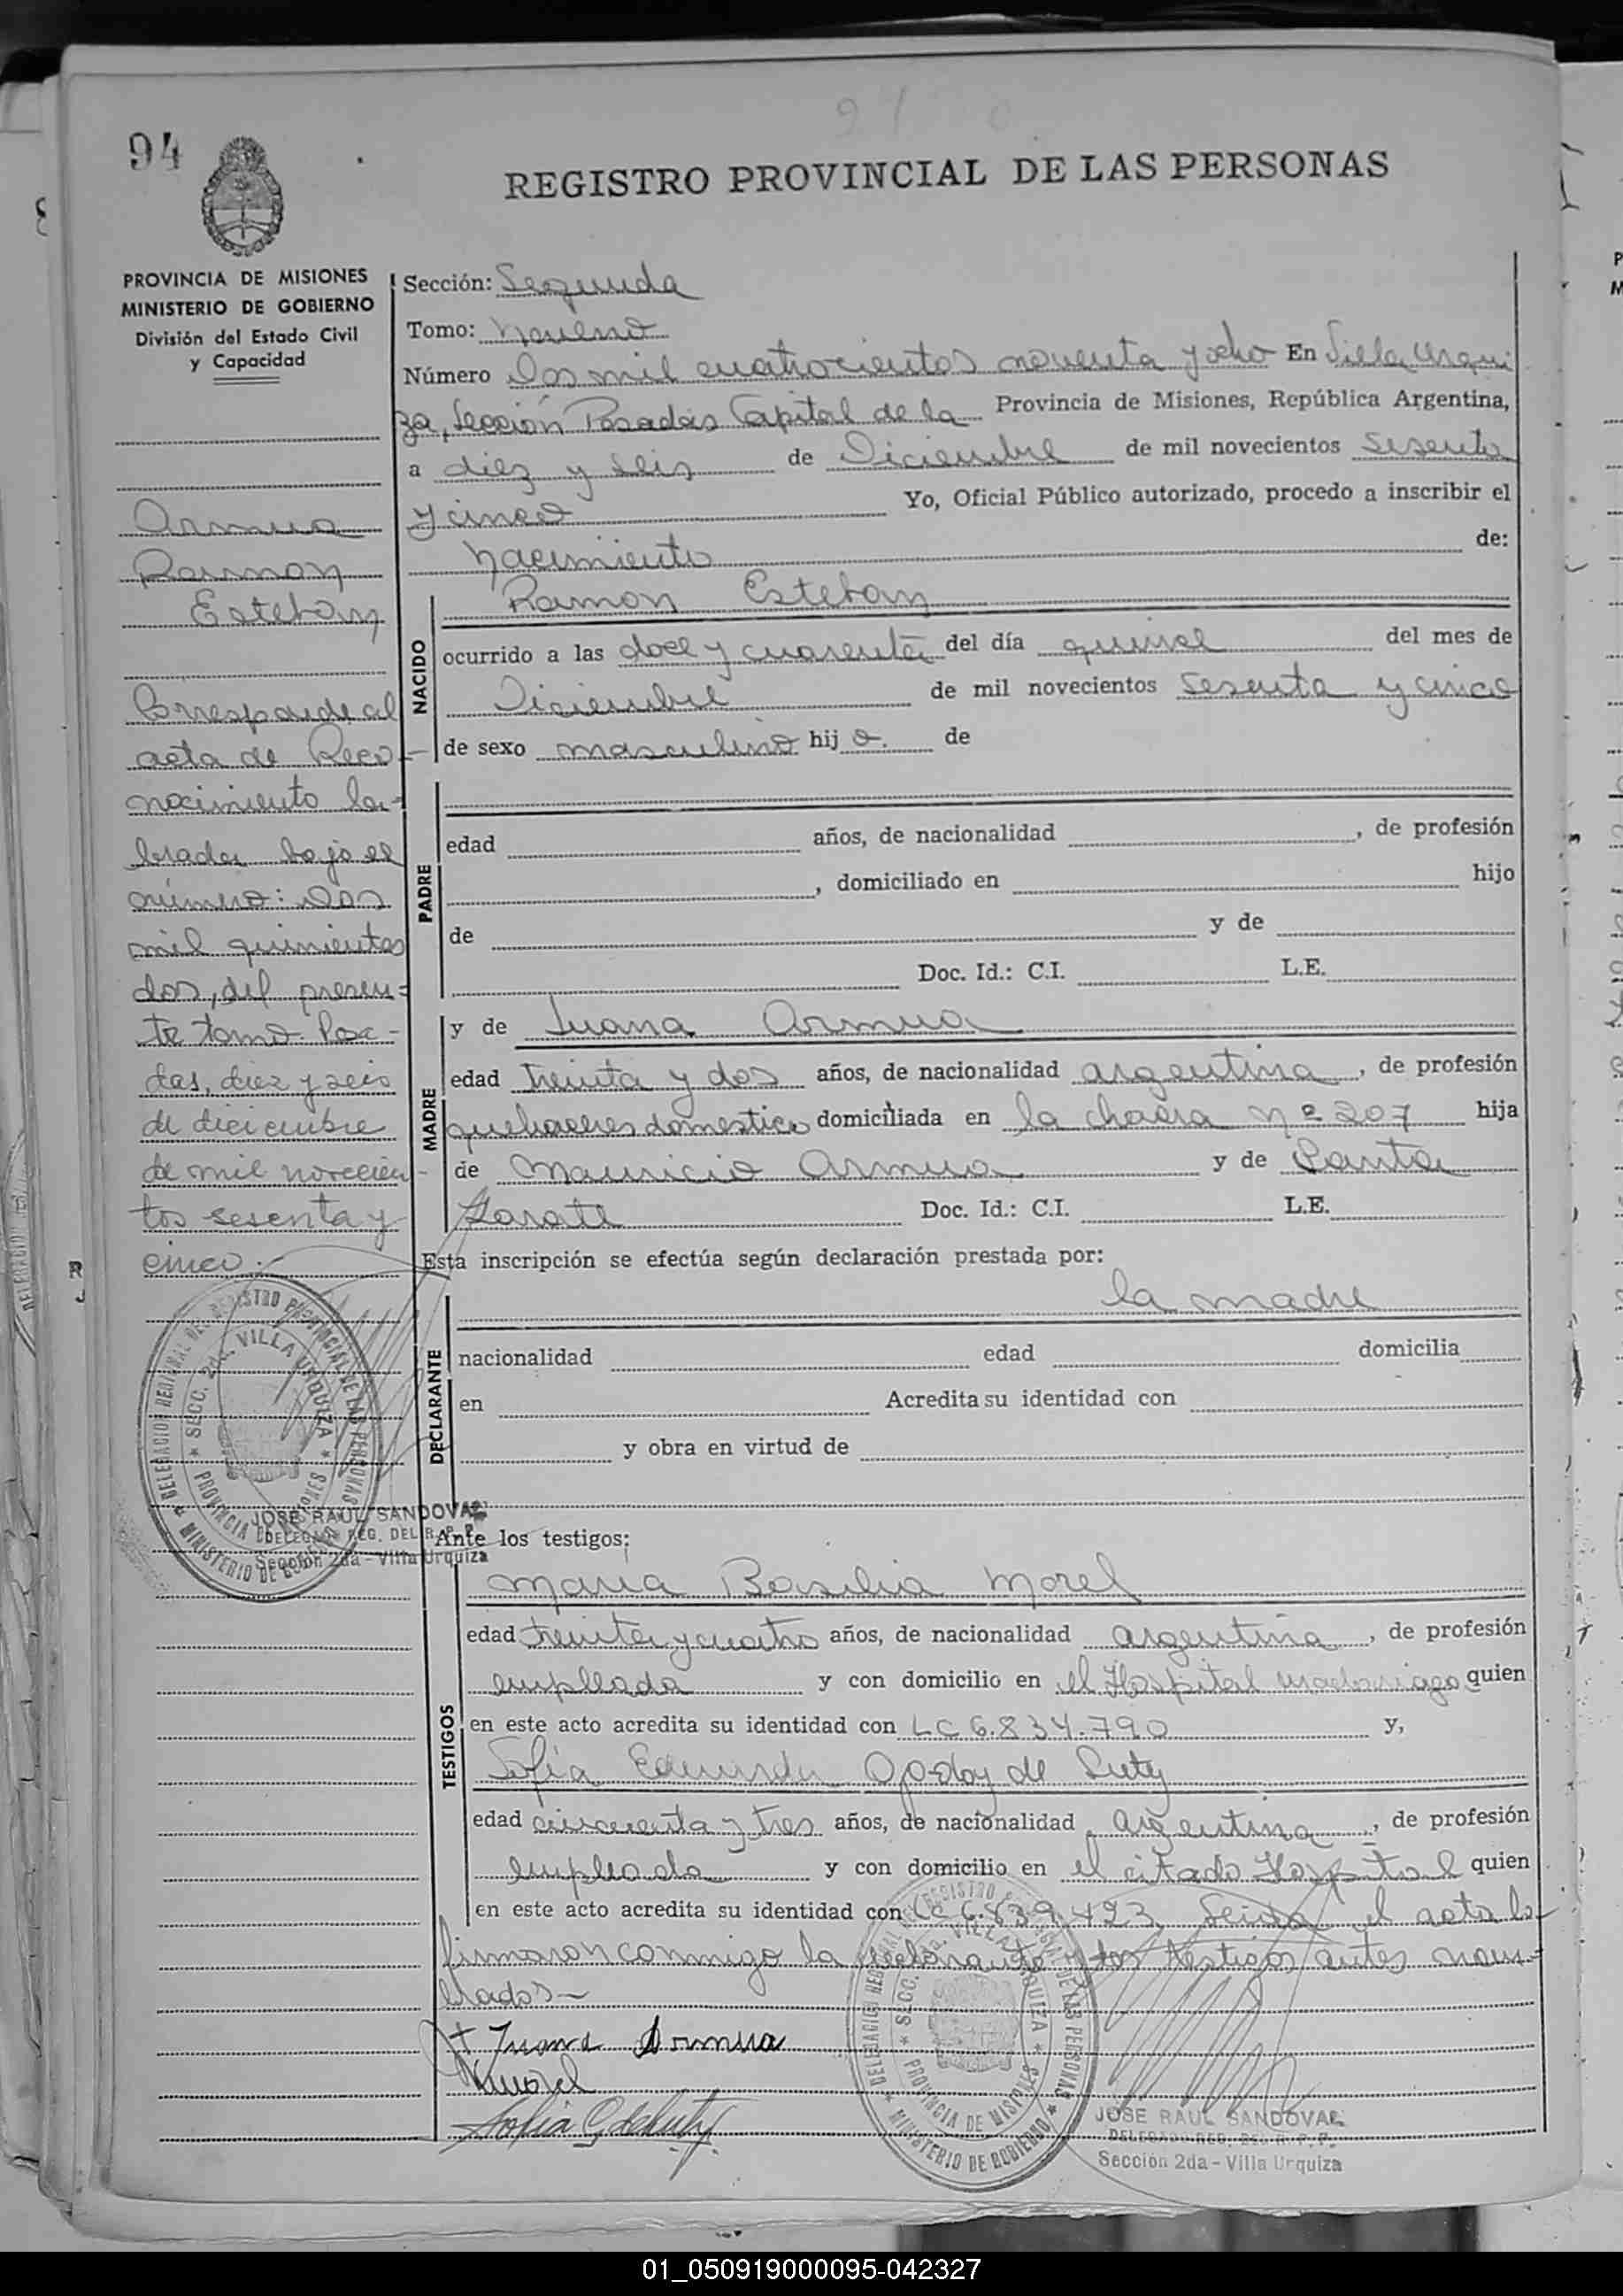 94
REGISTRO PROVINCIAL DE LAS PERSONAS
PROVINCIA DE MISIONES
MINISTERIO DE GOBIERNO
División del Estado Civil
y Capacidad
Armua
Ramon
Esteban
Corresponde al
acta de Reco-
nocimiento la-
brada bajo el
número: dos
mil quinientos
dos, del presen-
te tomo. Posa-
das, diez y seis
de diciembre
de mil novecien-
tos sesenta y
cinco.-
Sección: Segunda
Tomo: Noveno
Número dos mil cuatrocientos noventa y ocho En Villa Urqui
za, Sección Posadas Capital de la Provincia de Misiones, República Argentina,
a diez y seis de Diciembre de mil novecientos sesenta
y cinco Yo, Oficial Público autorizado, procedo a inscribir el
nacimiento de:
NACIDO
Ramon Esteban
ocurrido a las doce y cuarenta del día quince del mes de
Diciembre de mil novecientos sesenta y cinco
de sexo masculino hij o. de
PADRE
edad años, de nacionalidad , de profesión
, domiciliado en hijo
de y de
Doc. Id.: C.I. L.E.
MADRE
y de Juana Armua
edad treinta y dos años, de nacionalidad argentina, de profesión
quehaceres domestico domiciliada en la chacra Nº 207 hija
de Mauricio Armua y de Santa
Zarate Doc. Id.: C.I. L.E.
Esta inscripción se efectúa según declaración prestada por:
la madre
DECLARANTE
nacionalidad edad domicilia
en Acredita su identidad con
y obra en virtud de
DELEGACION REGIONAL DEL REGISTRO PROVINCIAL DE LAS PERSONAS
SECC. 2da. VILLA URQUIZA
PROVINCIA DE MISIONES
MINISTERIO DE GOBIERNO
JOSE RAUL SANDOVAL
DELEGADO REG. DEL R. P. P.
Sección 2da - Villa Urquiza
Ante los testigos:
TESTIGOS
Maria Basilia Morel
edad treinta y cuatro años, de nacionalidad argentina, de profesión
empleada y con domicilio en el Hospital Madariaga quien
en este acto acredita su identidad con LC 6.834.790 y,
Sofia Godoy de
edad cincuenta y tres años, de nacionalidad argentina, de profesión
empleada y con domicilio en el citado Hospital quien
en este acto acredita su identidad con LC 6.839.423, Leida el acta la
firmaron conmigo la declarante y los testigos antes nom-
brados-
+ Juana Armua
Morel
Sofia
DELEGACION REGIONAL DEL REGISTRO PROVINCIAL DE LAS PERSONAS
SECC. 2da. VILLA URQUIZA
PROVINCIA DE MISIONES
MINISTERIO DE GOBIERNO
JOSE RAUL SANDOVAL
DELEGADO REG. DEL R. P. P.
Sección 2da - Villa Urquiza
01_050919000095-042327